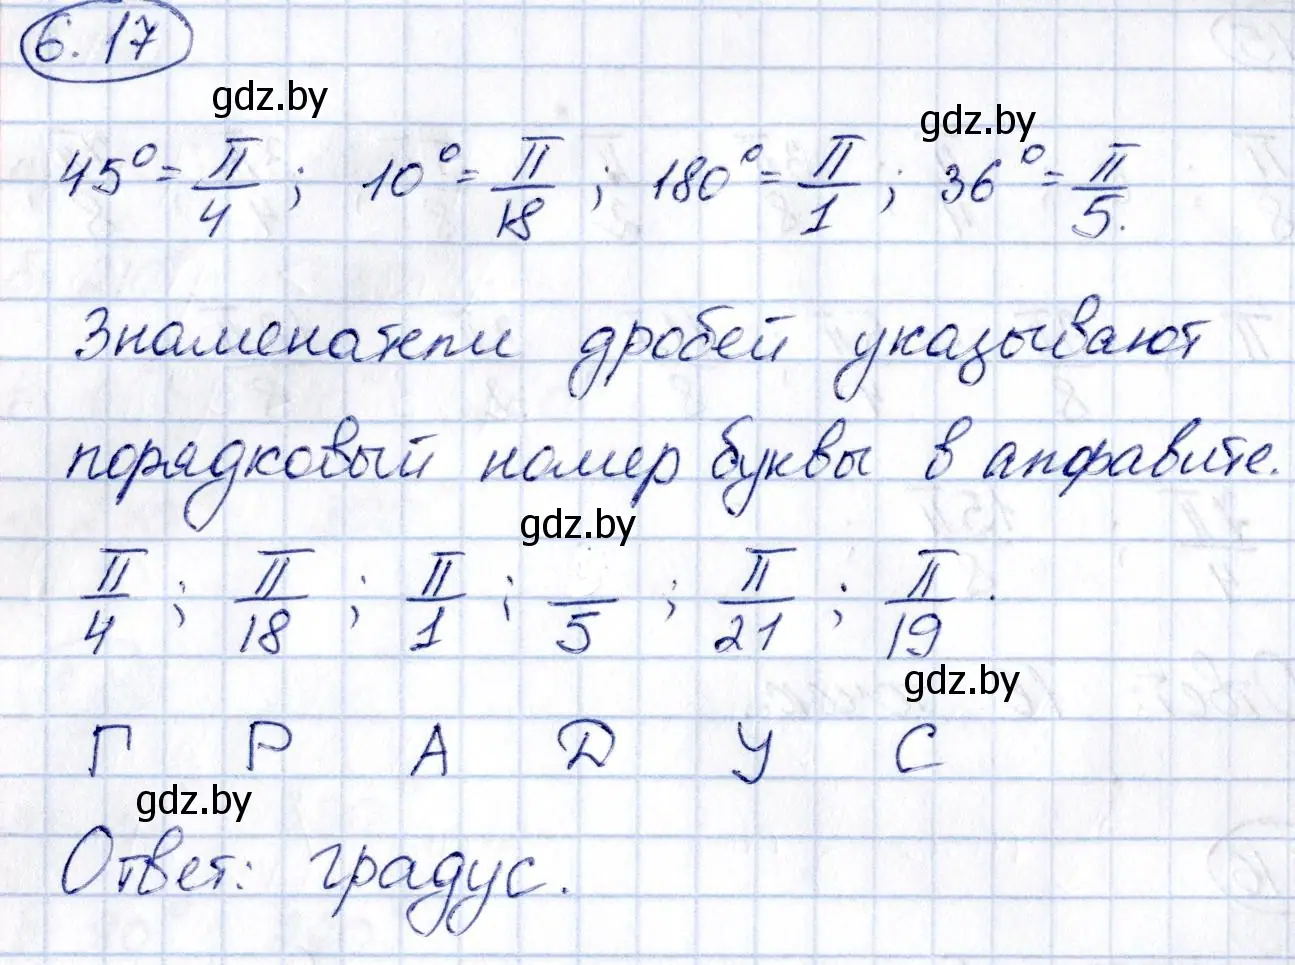 6.17
gdz.by
gdz.by
45° = π/4 ; 10° = π/18 ; 180° = π/1 ; 36° = π/5.
Знаменатели дробей указывают
порядковый номер буквы в алфавите.
gdz.by
π/4 ; π/18 ; π/1 ; /5 ; π/21 ; π/19 .
gdz.by
Г Р А Д У С
gdz.by
Ответ: градус.